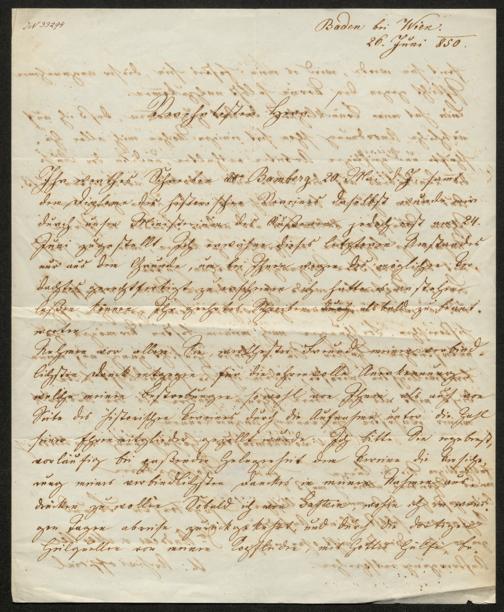 IN 33244
Baden bei Wien.
26. Juni 850.
Verehrtester Herr!
Ihr werthes Schreiben Bamberg 20. Mai d. J. sammt
dem Diplome des historischen Vereines daselbst wurde mir
durch unser Ministerium des Äußeren jedoch erst am 24.
Juni zugestellt. Ich erwähne dieses letzteren Umstandes
nur aus dem Grunde, um bei Ihnen wegen des möglichen Ver-
dachtes gerechtfertigt zu erscheinen, als hätte es
können, Ihr geehrtes Schreiben zu beant-
worten.
Nehmen vor allem Sie verehrtester Freund meinen verbind-
lichsten Dank entgegen für die ehrenvolle Anerkennung
welche meinen Bestrebungen sowohl von Ihnen als auch von
Seite des historischen Vereines durch die Aufnahme unter die Zahl
seiner Ehrenmitglieder gezollt wurde. Ich bitte Sie ergebenst
vorläufig bei passender Gelegenheit dem Vereine die Versiche-
rung meines verbindlichsten Dankes in meinem Namen aus-
drücken zu wollen. Sobald ich von Gastein, wohin ich in weni-
gen Tagen abreise zurückgekehrt und durch die dortigen
Heilquellen von meinem Kopfleiden, mit Gottes Hülfe be-